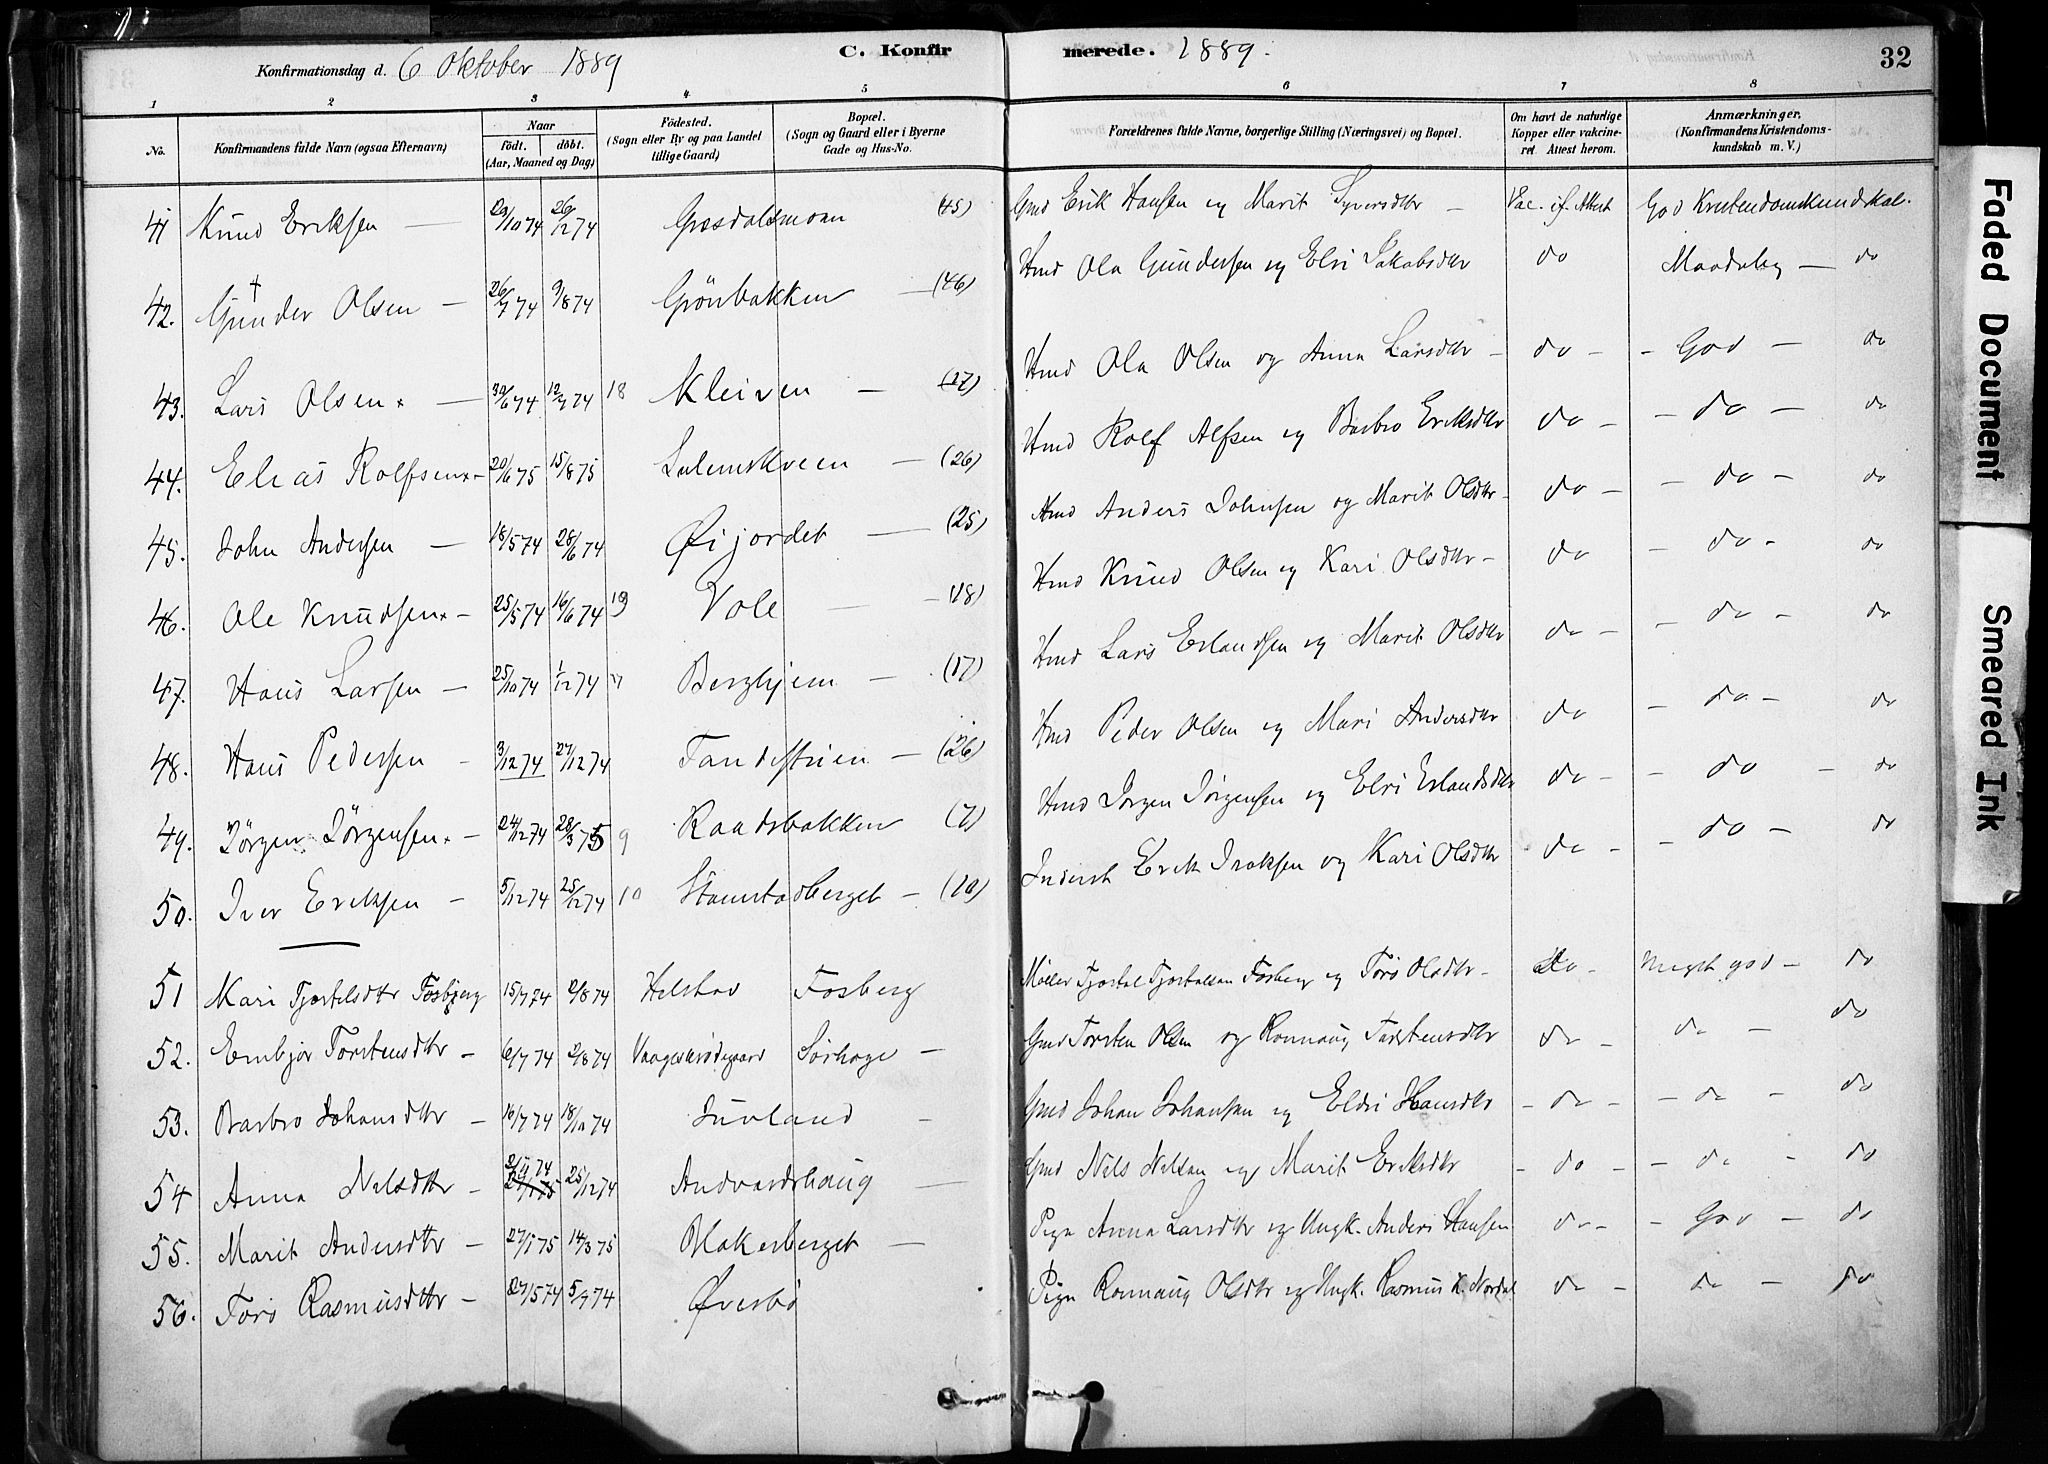 Konfirmationsdag d. 6 Oktober 1889
C. Konfirmerede. 1889.
32
1 2 3 4 5 6 7 8
No.
Konfirmandens fulde Navn (ogsaa Efternavn)
Naar født. døbt. (Aar, Maaned og Dag)
Fødested. (Sogn eller By og paa Landet tillige Gaard)
Bopæl. (Sogn og Gaard eller i Byerne Gade og Hus-No.
Forældrenes fulde Navne, borgerlige Stilling (Næringsvei) og Bopæl.
Om havt de naturlige Kopper eller vakcineret. Attest herom.
Anmærkninger. (Konfirmandens Kristendomskundskab m. V.)
41 Knud Eriksen — 29/10 74 26/12 74 Grosdalsmoen (45) Gmd Erik Hansen og Marit Syversdtr — Vac. if. Attest God Kristendomskundskab.
42. Gunder Olsen — 26/7 74 9/8 74 Grönbakken — (46) Hmd Ola Gundersen og Elri Jakobsdtr do Maadelig — do
43. Lars Olsen — 30/6 74 12/7 74 18 Kleiven — (17) Hmd Ola Olsen og Anna Larsdtr — do — — God — do
44. Elias Rolfsen — 20/6 75 15/8 75 Sulemskveen — (26) Hmd Rolf Alfsen og Barbro Eriksdtr do — — do — do
45. John Andersen — 18/5 74 28/6 74 Øijordet — (25) Hmd Anders Johnsen og Marit Olsdtr — do — — do — do
46. Ole Knudsen — 25/5 74 16/6 74 19 Vole — (18) Hmd Knud Olsen og Kari Olsdtr — do — do — do
47. Hans Larsen — 25/10 74 1/12 74 Berghjem — (17) Hmd Lars Erlandsen og Marit Olsdtr do — — do — do
48. Hans Pedersen — 3/12 74 27/12 74 Tandestuen — (26) Hmd Peder Olsen og Mari Andersdtr do — do — do
49. Jörgen Jörgensen — 24/12 74 28/3 75 9 Raadsbakken (7) Hmd Jørgen Jörgensen og Elri Erlandsdtr do — — do — do
50. Iver Eriksen — 5/12 74 25/12 74 10 Stamstadberget — (10) Inderst Erik Isaksen og Kari Olsdtr do — — do — do
51 Kari Tjostelsdtr Fosberg 15/7 74 2/8 74 Helstad Fosberg Møller Tjostel Tjostelsen Fosberg og Toro Olsdtr — do — Meget god — do
52. Embjør Torstensdtr — 6/7 74 2/8 74 Vaageskrødegaard Sørhage — Gmd Torsten Olsen og Ronnaug Torstensdtr do — do — do
53. Barbro Johansdtr — 16/7 74 18/10 74 Juvland — Gmd Johan Johansen og Eldri Hansdtr — do — — do — do
54 Anna Nilsdtr — 25/12 74 Andvardshaug — Gmd Nils Nilsen og Marit Eriksdtr — do — — do — do
55. Marit Andersdtr — 27/1 75 14/3 75 Blakerberget — Pige Anna Larsdtr og Ungk. Anders Hansen do — — God — do
56. Toro Rasmusdtr — 27/5 74 5/7 74 Øverbø Pige Ronnaug Olsdtr og Ungk. Rasmus K. Nordal do — do — do
Faded Document
Smeared Ink